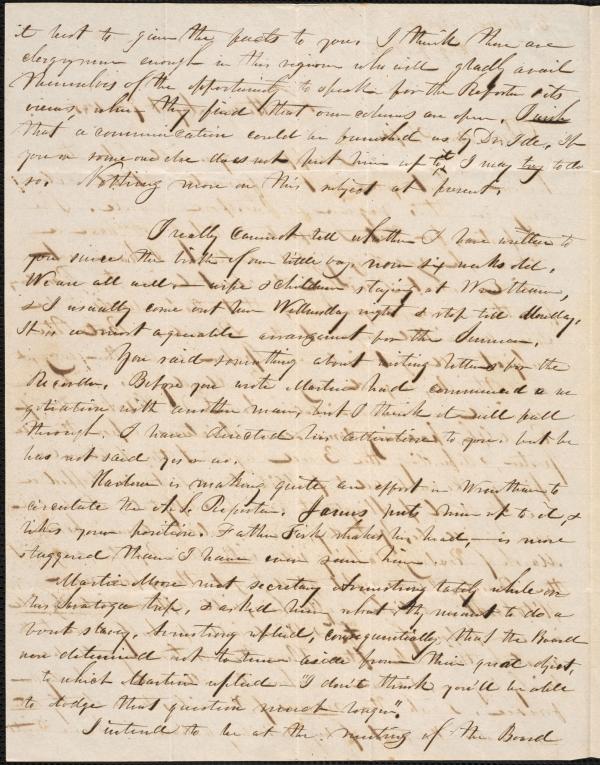 it best to give the facts to you. I think there are
clergymen enough in this region who will gladly avail
themselves of the opportunity to speak for the Reporter & its
views, when they find that our columns are open. I wish
that a communication could be furnished us by Dr. Ide. If
you or some one else does not put him up to it I may try to do
so. Nothing more on this subject at present.
I really cannot tell whether I have written to
you since the birth of our little boy, now six weeks old.
We are all well — wife & children staying at Wrentham,
& I usually come out here Wednesday night & stop till Monday.
It is a most agreeable arrangement for the Summer.
You said something about writing letters for the
Recorder. Before you wrote Martin had commenced a ne
gotiation with another man, but I think it will fall
through. I have directed his attention to you, but he
has not said yes or no.
Harlow is making quite an effort in Wrentham to
circulate the A. S. Reporter. James puts him up to it, &
likes your position. Father Fisk shakes his head, — is more
staggered than I have ever seen him.
Martin Moore met secretary Armstrong lately while on
his Saratoga trip, & asked him what they meant to do a
bout slavery. Armstrong replied, consequentially, that the Board
were determined not to turn aside from their great object,
— to which Martin replied — "I don't think you'll be able
to dodge that question much longer".
I intend to be at the meeting of the Board